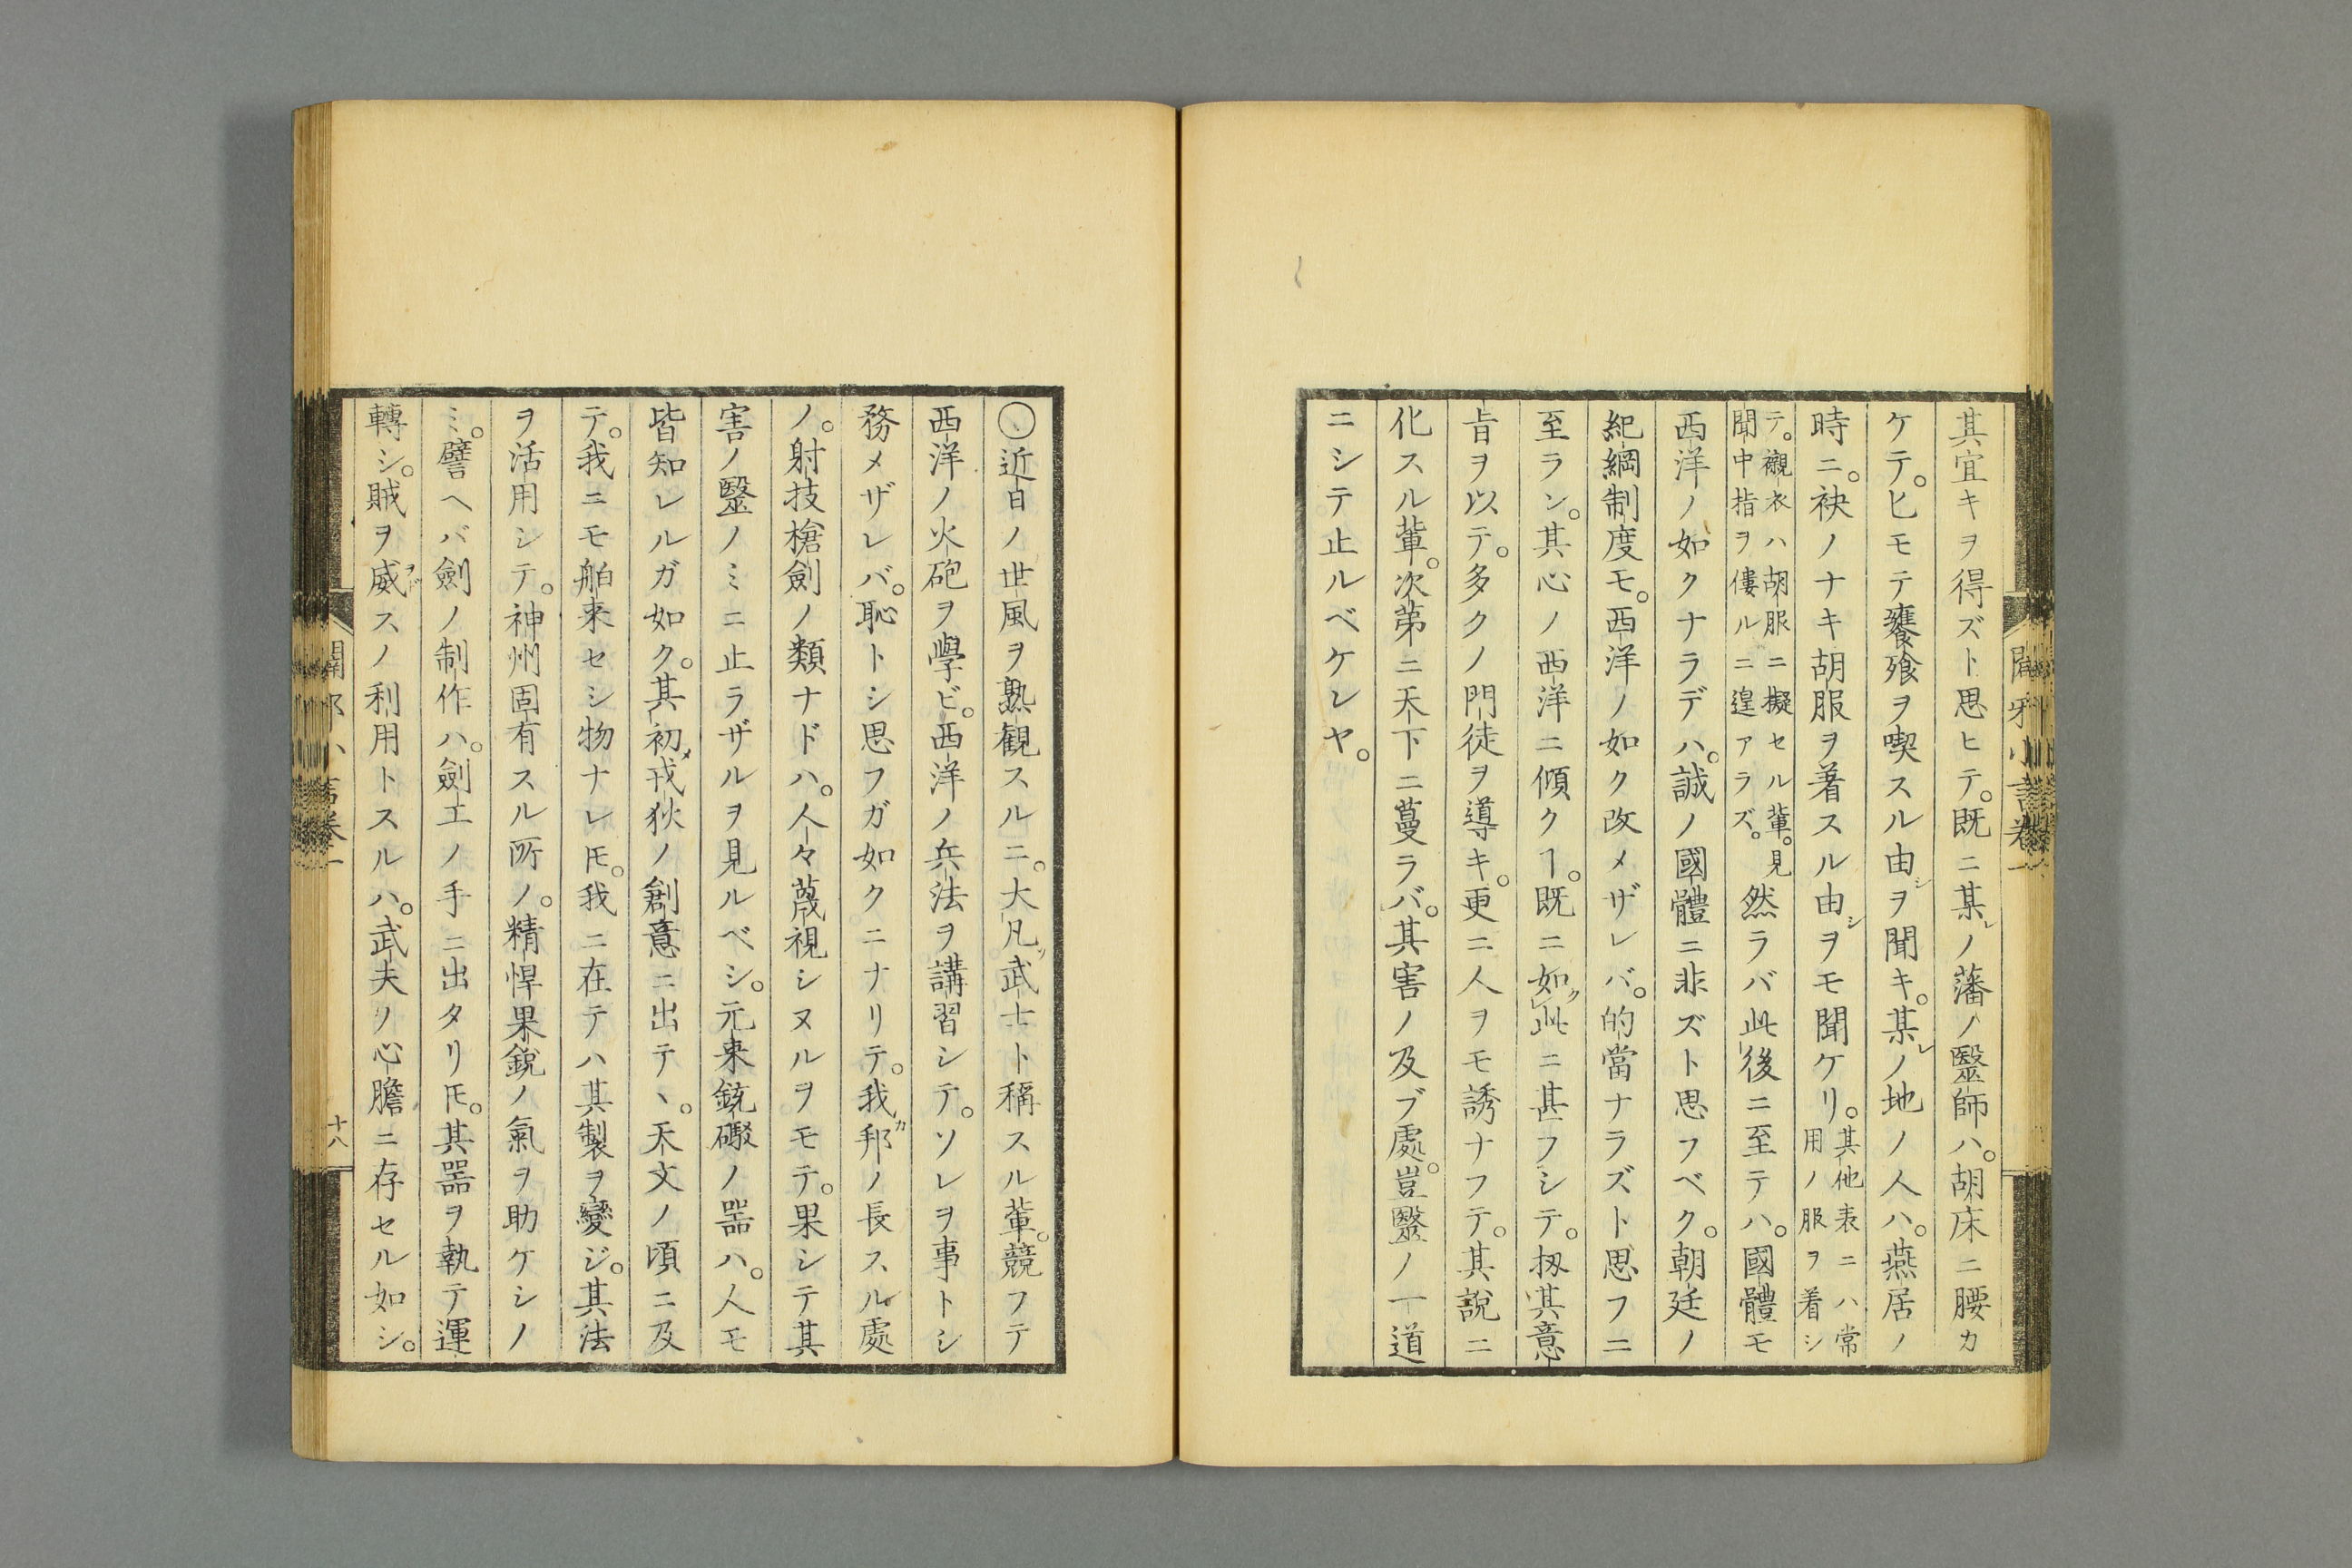 其宜キヲ得ズト思ヒテ。既ニ某レノ藩ノ醫師ハ。胡床ニ腰カ
ケテ。匕モテ饔飱ヲ喫スル由シヲ聞キ。某レノ地ノ人ハ。燕居ノ
時ニ。袂ノナキ胡服ヲ着スル由シヲモ聞ケリ。其他表ニハ常
用ノ服ヲ着シ
テ。襯衣ハ胡服ニ擬セル輩。見
聞中指ヲ僂ルニ遑アラズ。
然ラバ此後ニ至テハ。國體モ
西洋ノ如クナラデハ。誠ノ國體ニ非ズト思フベク。朝廷ノ
紀綱制度モ。西洋ノ如ク改メザレバ。的當ナラズト思フニ
至ラン。其心ノ西洋ニ傾クヿ。既ニ如クレ此ニ甚フシテ。扨其意
旨ヲ以テ。多クノ門徒ヲ導キ。更ニ人ヲモ誘ナフテ。其說ニ
化スル輩。次第ニ天下ニ蔓ラバ。其害ノ及ブ處。豈醫ノ一道
ニシテ止ルベケレヤ。
闢邪小言卷一
〇近日ノ世風ヲ熟観スルニ。大凡ソ武士ト稱スル輩。競フテ
西洋ノ火砲ヲ學ビ。西洋ノ兵法ヲ講習シテ。ソレヲ事トシ
務メザレバ。恥トシ思フガ如クニナリテ。我カ邦ノ長スル處
ノ。射技槍劍ノ類ナドハ。人々蔑視シヌルヲモテ。果シテ其
害ノ醫ノミニ止ラザルヲ見ルベシ。元来銃礮ノ噐ハ。人モ
皆知レルガ如ク。其初メ戎狄ノ創意ニ出テヽ。天文ノ頃ニ及
テ。我ニモ舶来セシ物ナレ𪜈。我ニ在テハ其製ヲ變ジ。其法
ヲ活用シテ。神州固有スル所ノ。精悍果銳ノ氣ヲ助ケシノ
ミ。譬ヘバ劍ノ制作ハ。劍工ノ手ニ出タリ𪜈。其噐ヲ執テ運
轉シ。賊ヲ威ヲドスノ利用トスルハ。武夫ノ心膽ニ存セル如シ。
闢邪小言卷一
十八